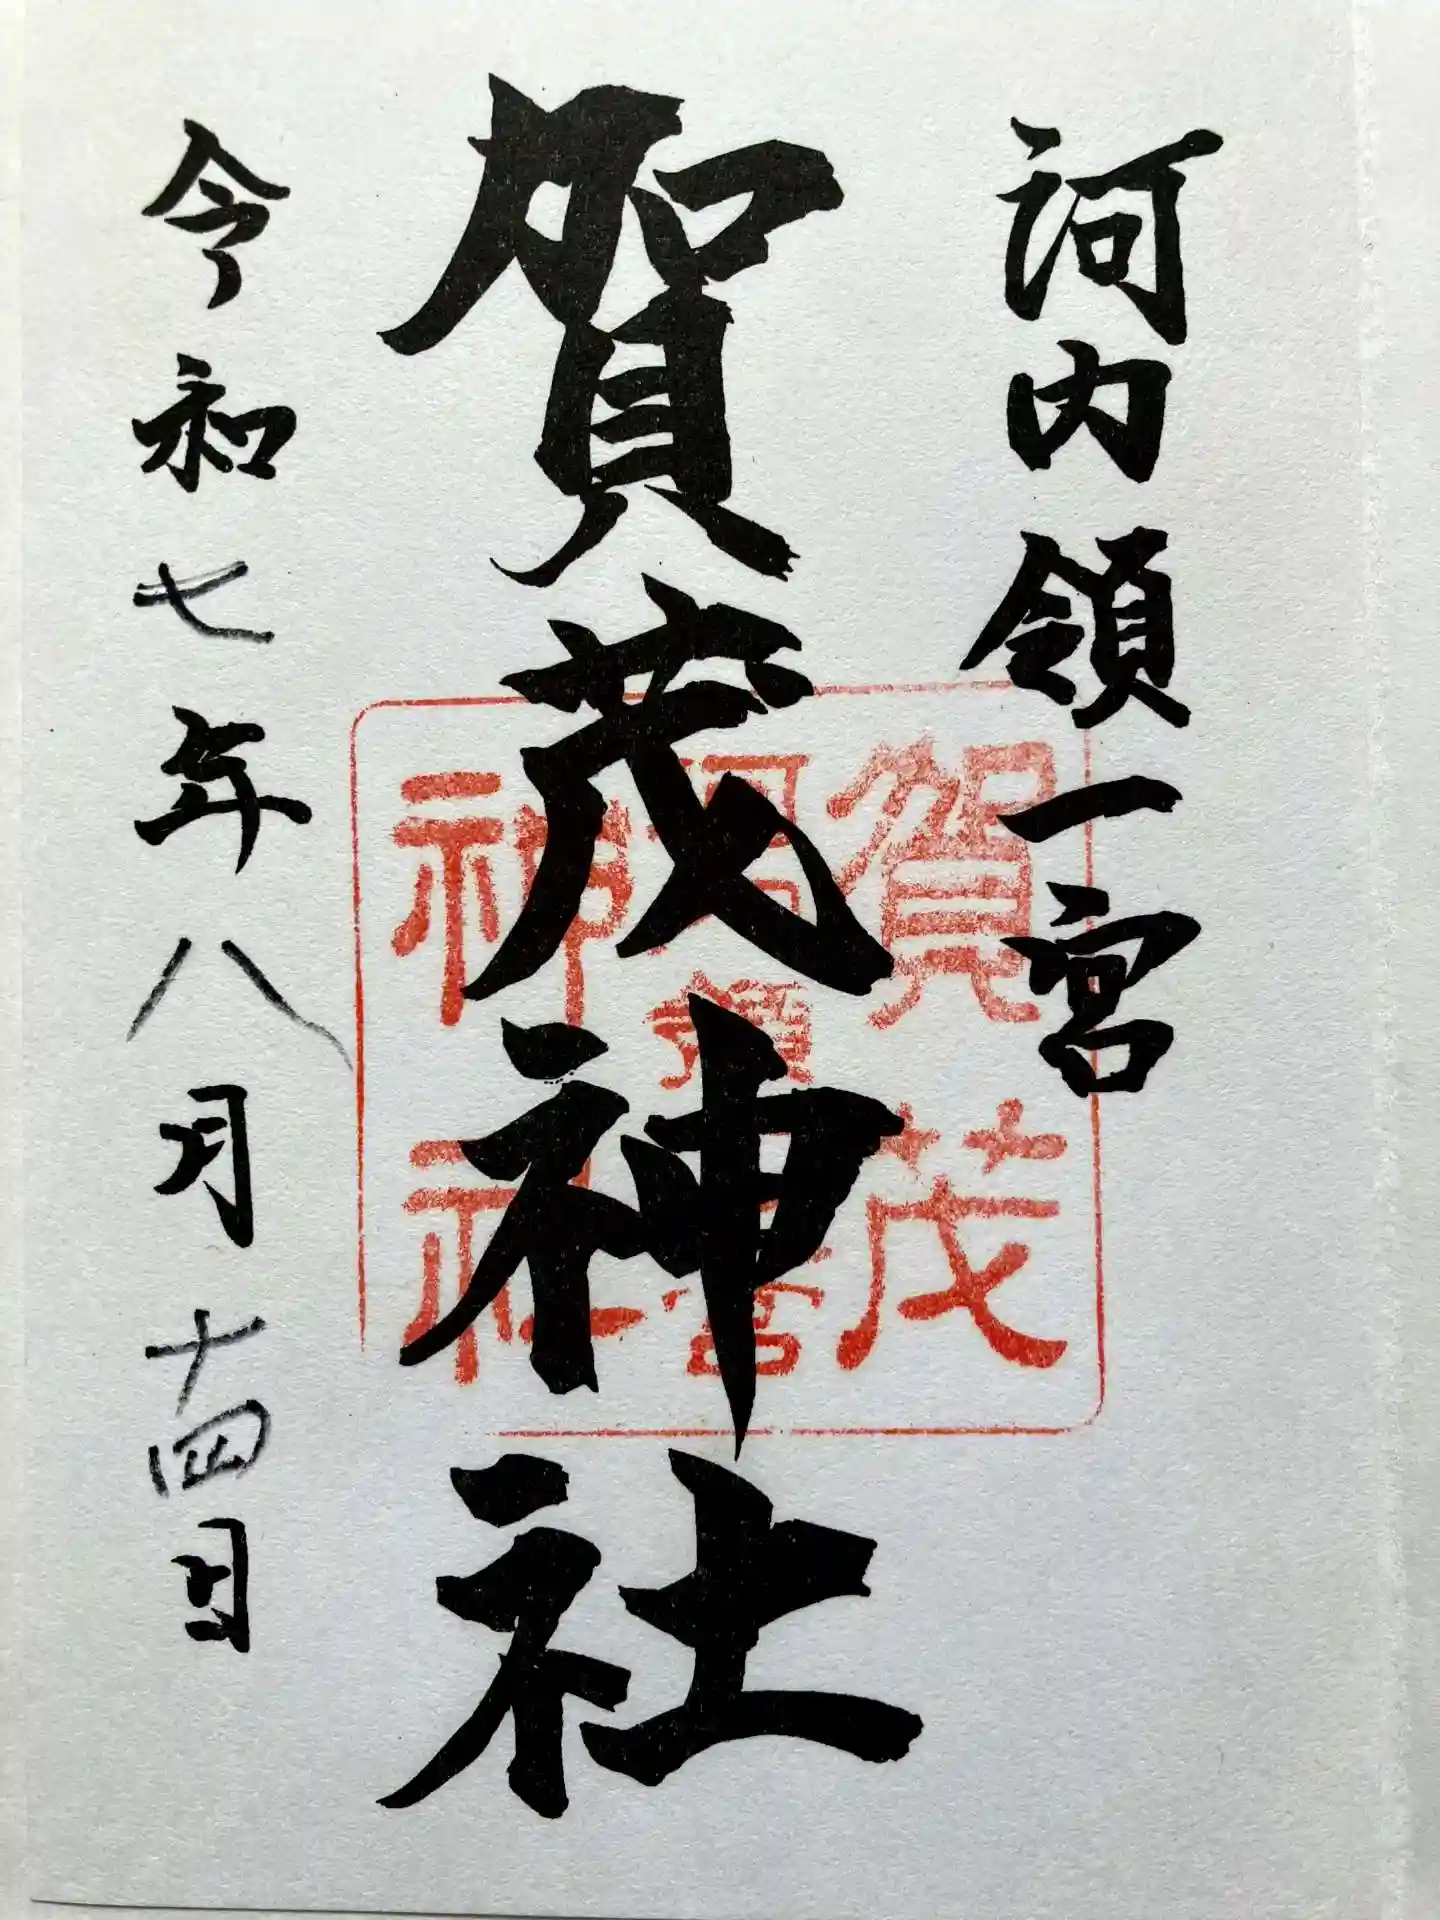 河内領一宮
賀茂神社
賀茂
河内領一宮
神社
令和七年八月十四日